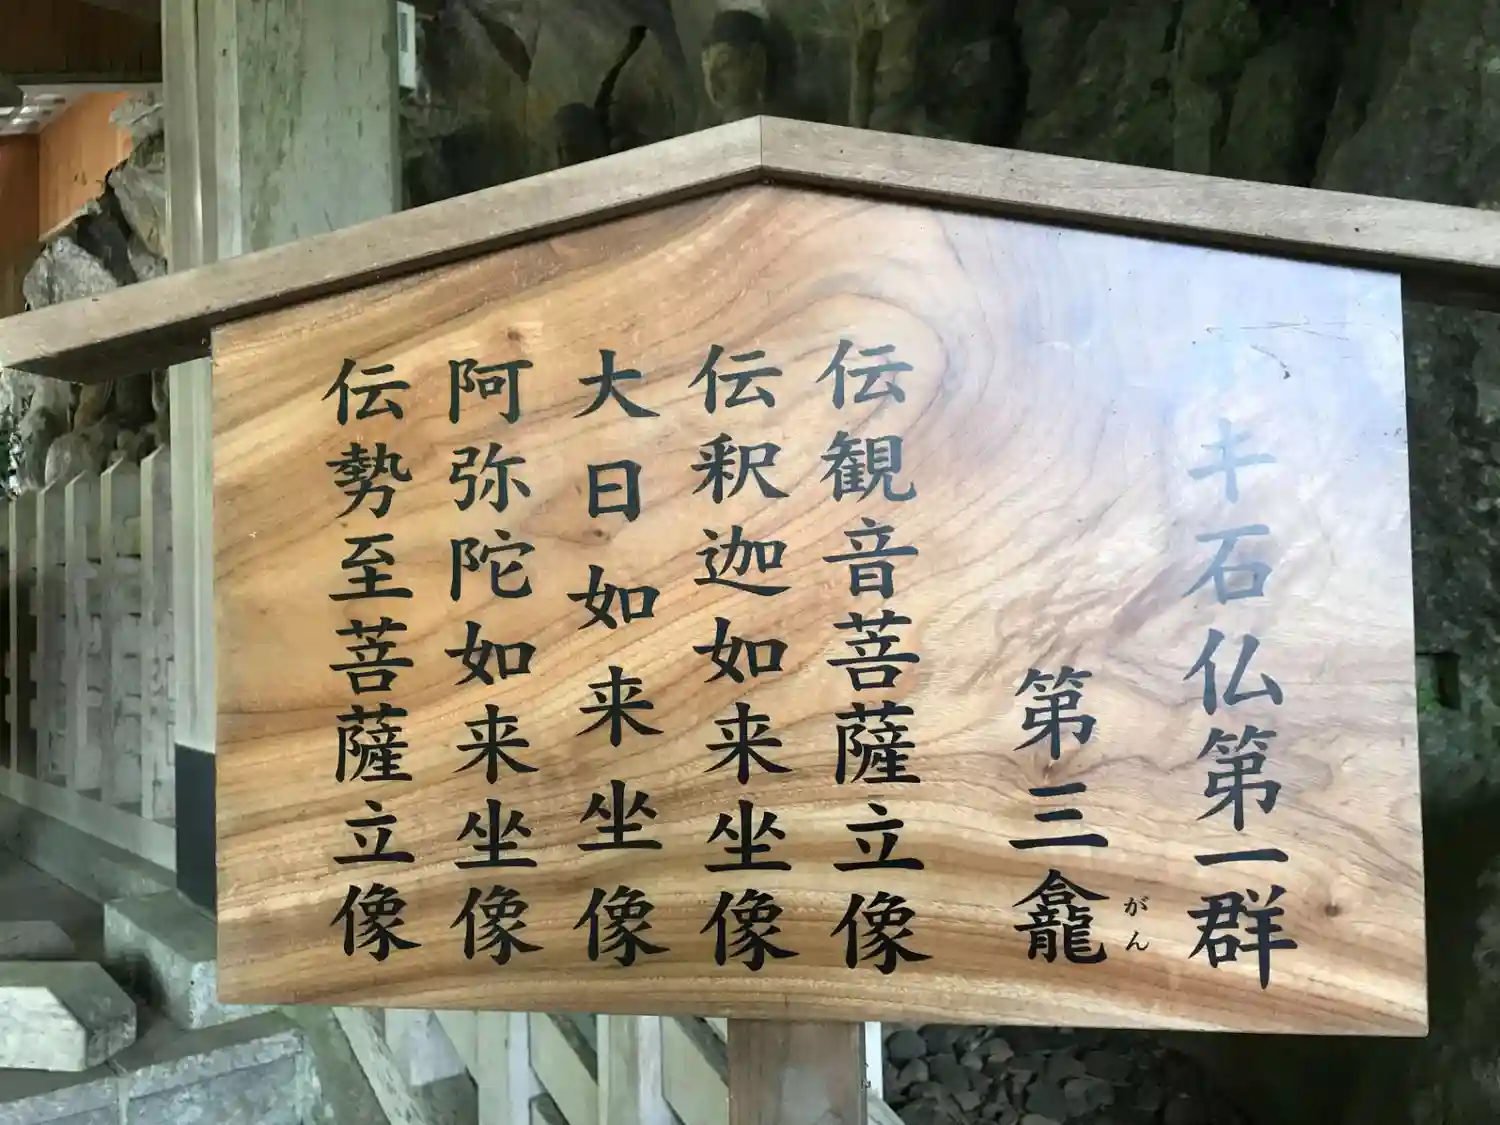 キ石仏第一群
第三龕
がん
伝観音菩薩立像
伝釈迦如来坐像
大日如来坐像
阿弥陀如来坐像
伝勢至菩薩立像